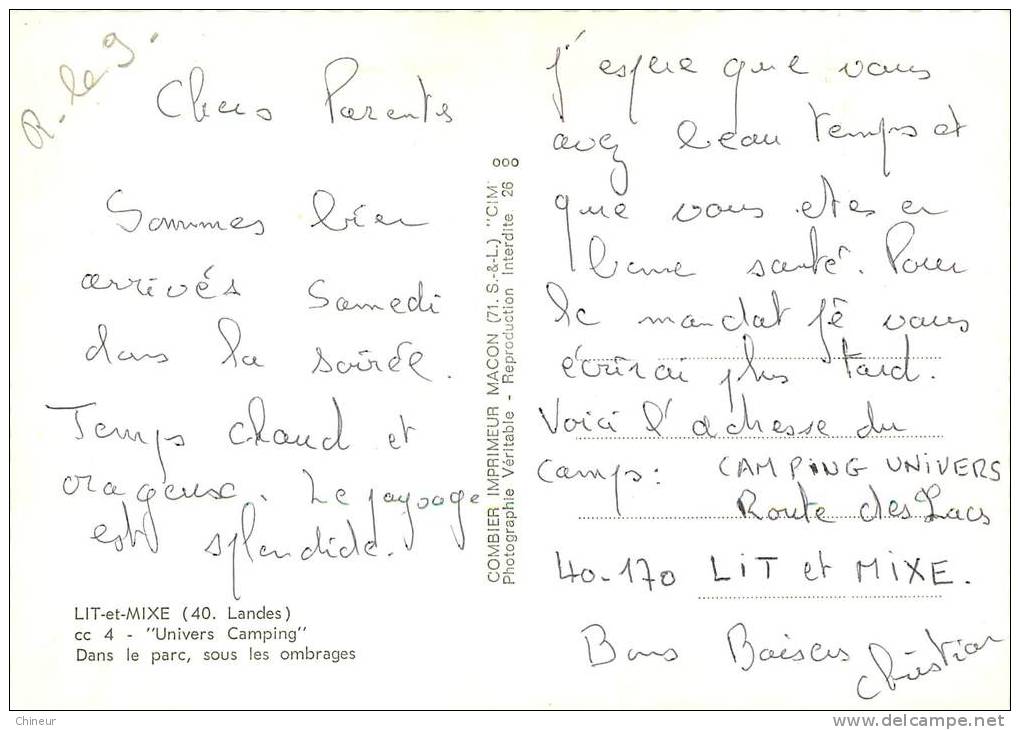 R. le 9.
Chers Parents
Sommes bien
arrivés Samedi
dans la soirée.
Temps chaud et
orageux. Le paysage
est splendide.
LIT-et-MIXE (40. Landes)
cc 4 - "Univers Camping"
Dans le parc, sous les ombrages
COMBIER IMPRIMEUR MACON (71. S.-&-L.) "CIM"
Photographie Véritable - Reproduction Interdite 26
000
j'espère que vous
avez beau temps et
que vous etes en
bonne santé. Pour
le mandat jé vous
écrirai plus tard.
Voici l'adresse du
camps: CAMPING UNIVERS
Route des Lacs
40-170 LIT et MIXE.
Bons Baisers
Christian
Chineur
http://www.delcampe.net